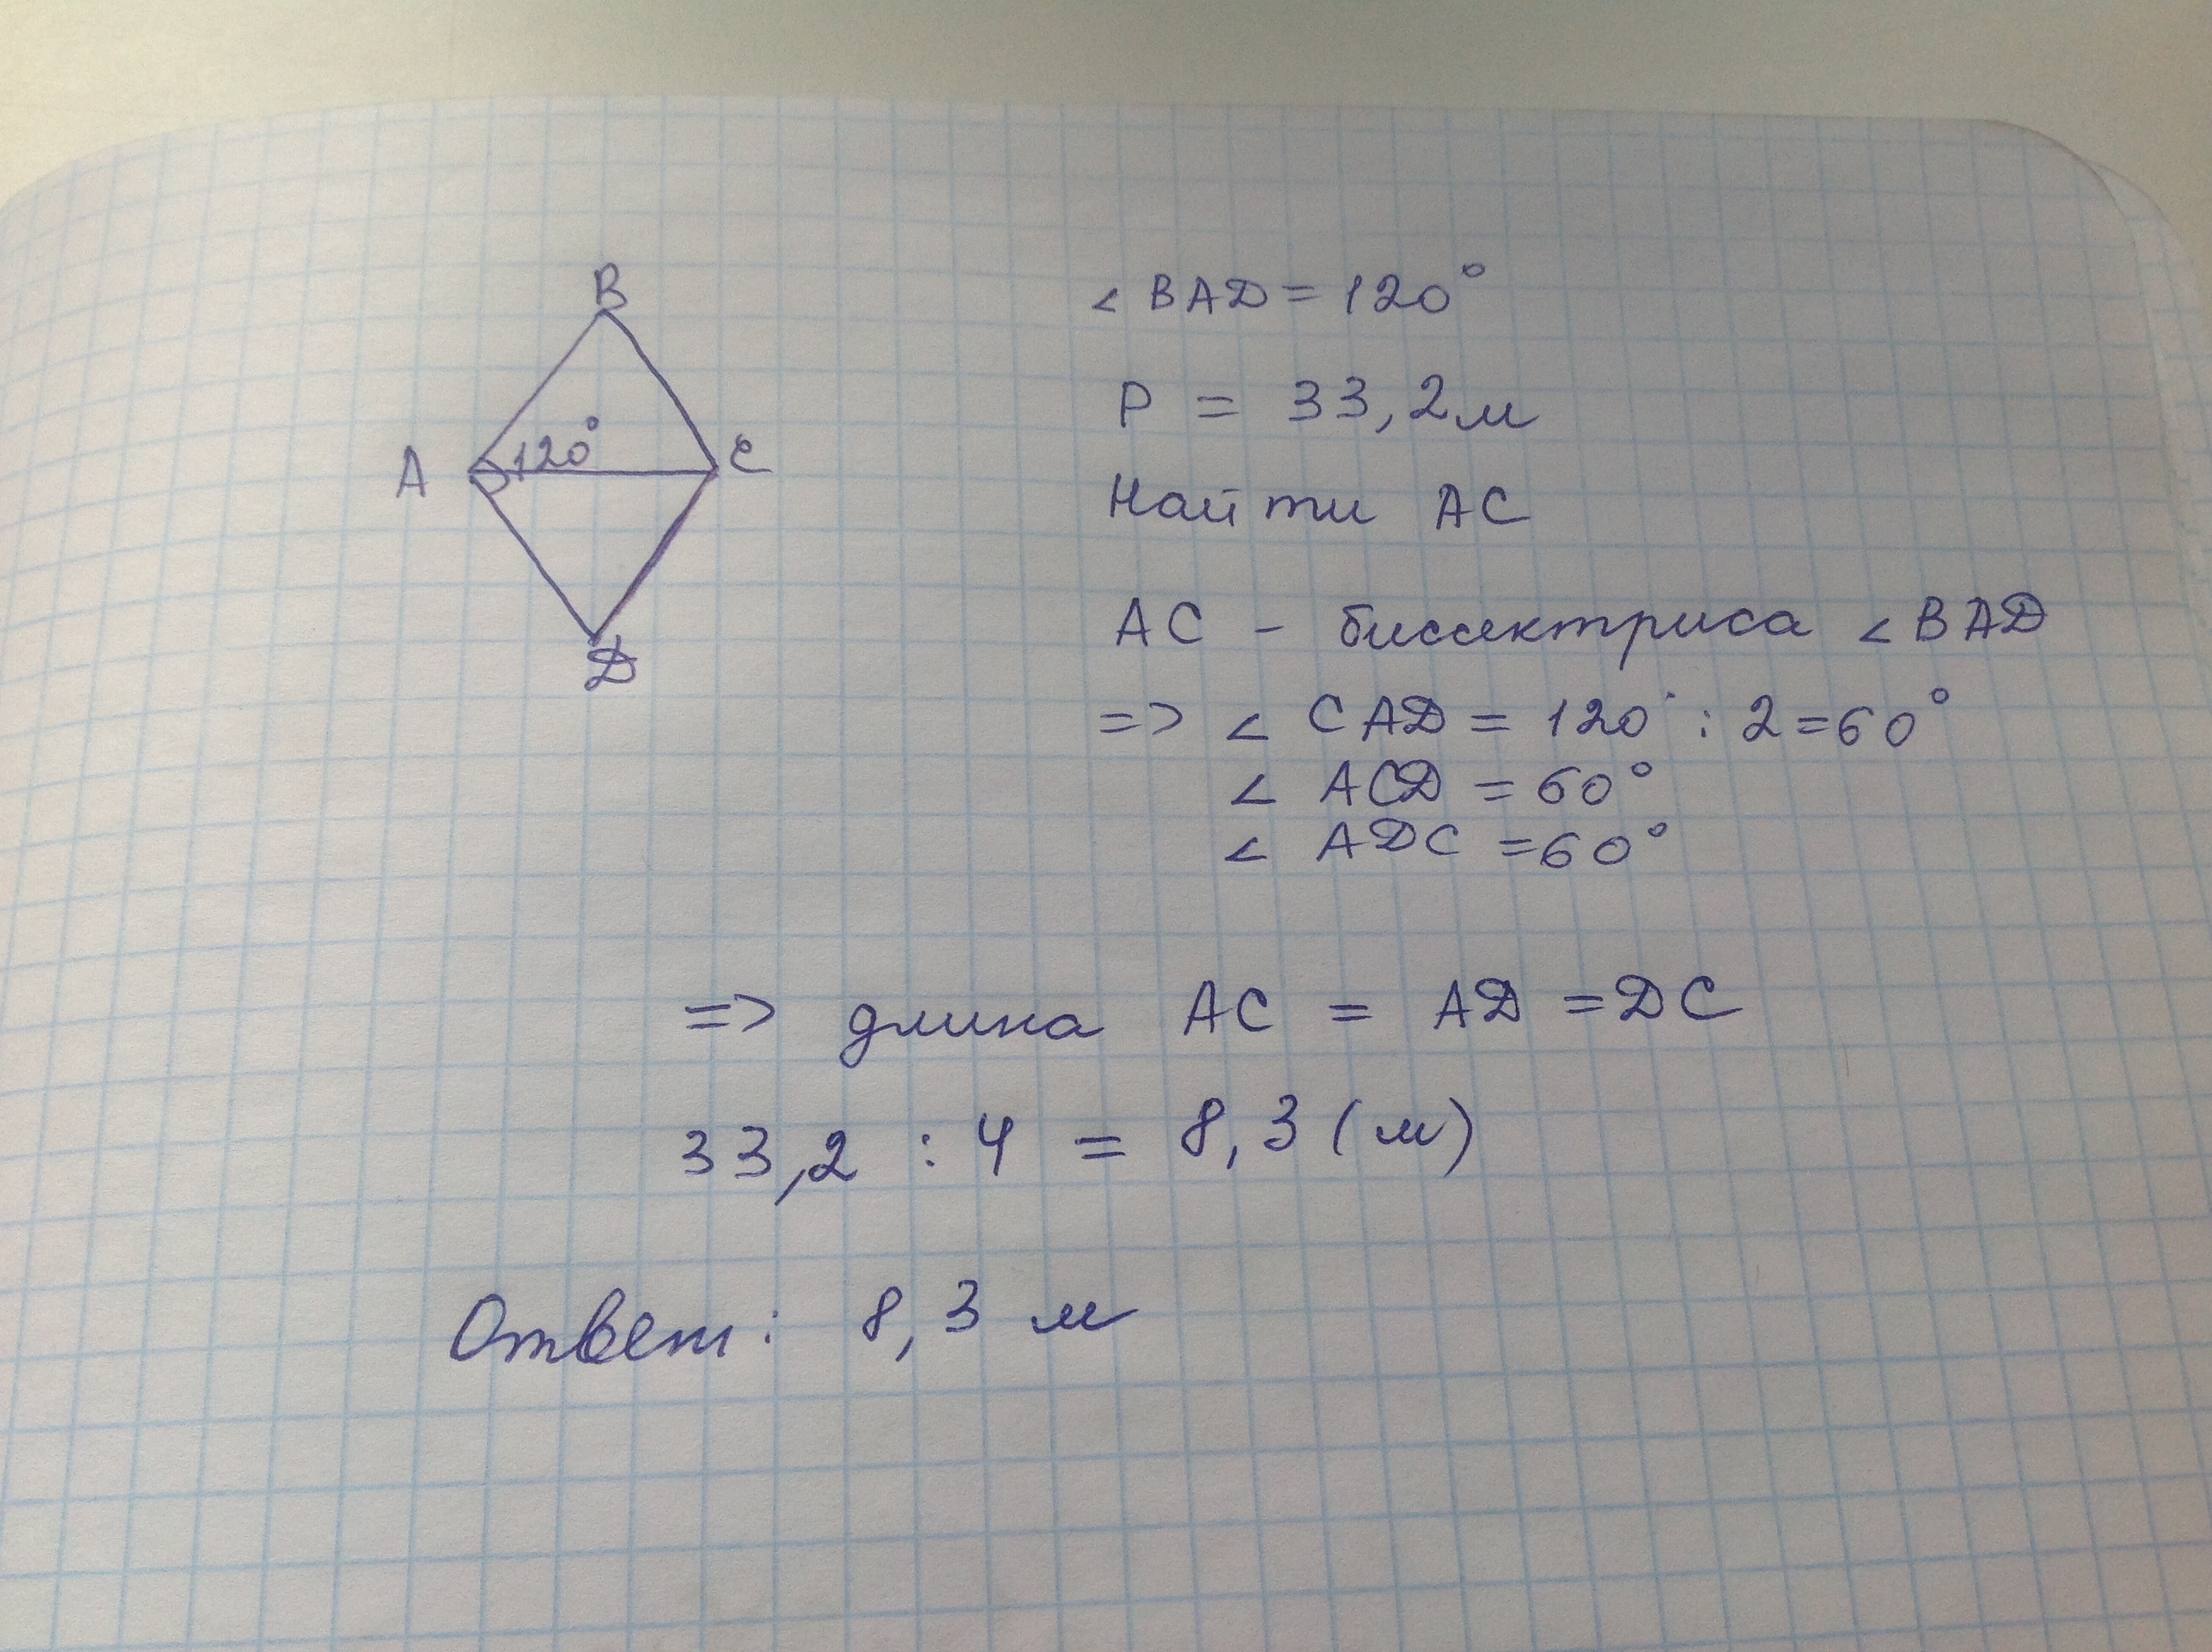 B
A 120° C
D
∠ BAD = 120°
P = 33,2 м
Найти AC
AC - биссектриса ∠ BAD
=> ∠ CAD = 120° : 2 = 60°
∠ ACD = 60°
∠ ADC = 60°
=> длина AC = AD = DC
33,2 : 4 = 8,3 (м)
Ответ: 8,3 м